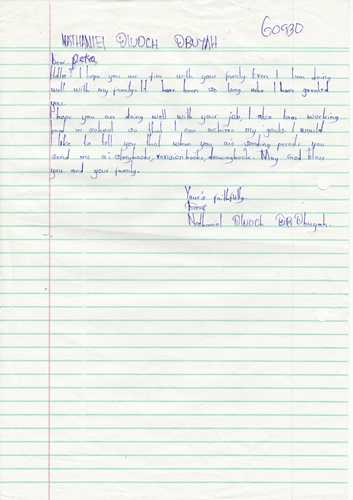 60930
NATHANIEL OWOCH OBUYAH
Dear Petra,
Hello? I hope you are fine with your family. Even I I am doing
well with my family. It have been so long who I have greeted
you.
I hope you are doing well with your job, I also I am working
hard in school so that I can achieve my goals. I would
like to tell you that when you are sending parcels you
send me a: storybooks, revision books, drawingbook. May God bless
you and your family.
Your's faithfully
Nathaniel OWOCH OBuyah.